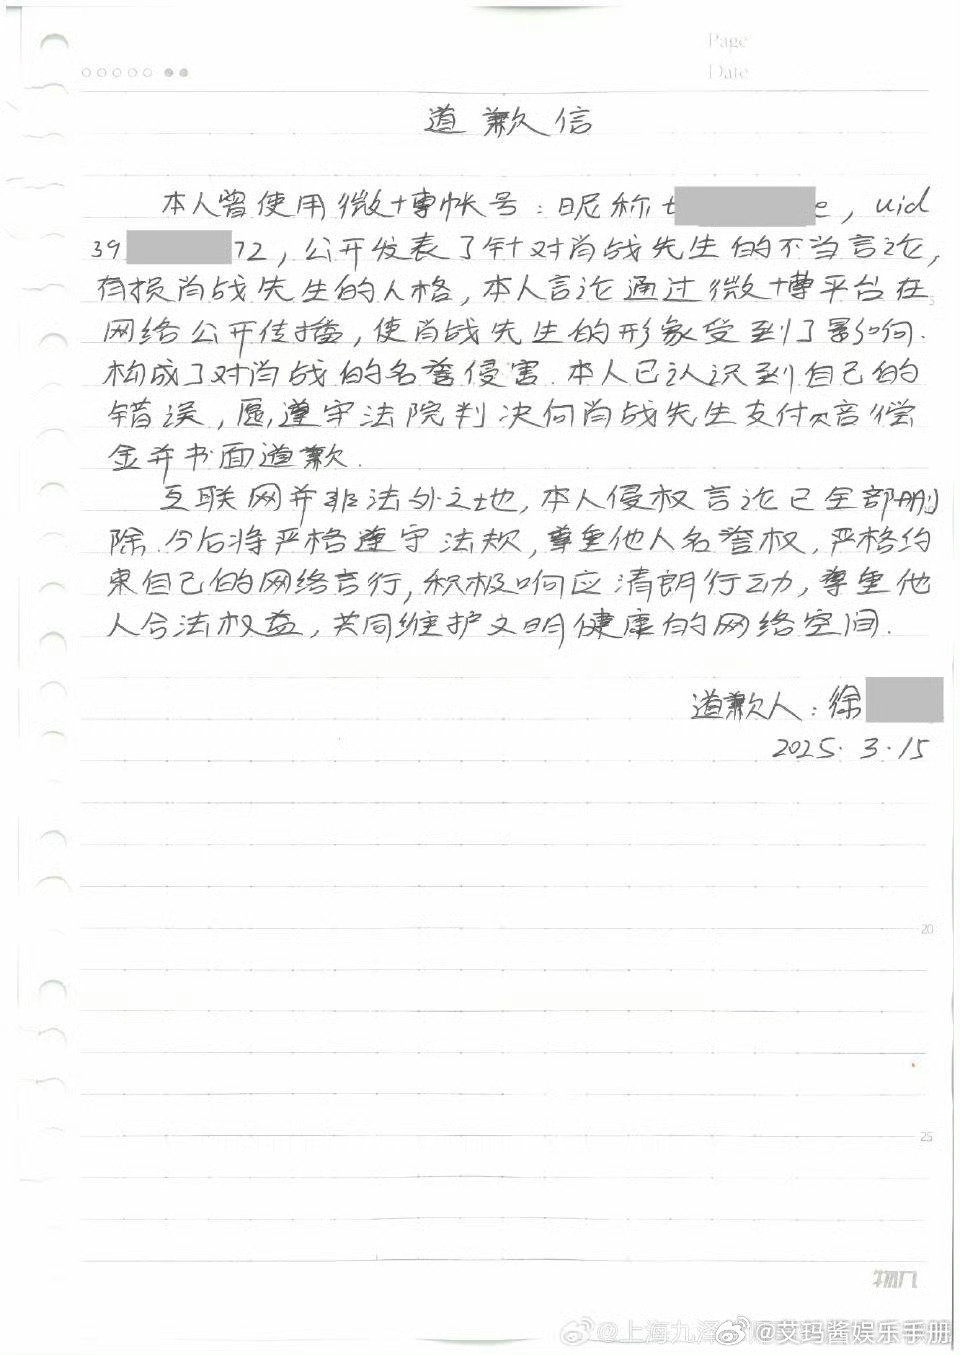 Page
Date
道歉信
本人曾使用微博帐号：昵称t e，uid
39 72，公开发表了针对肖战先生的不当言论，
有损肖战先生的人格，本人言论通过微博平台在
网络公开传播，使肖战先生的形象受到了影响.
构成了对肖战的名誉侵害.本人已认识到自己的
错误，愿遵守法院判决向肖战先生支付赔偿
金并书面道歉.
互联网并非法外之地，本人侵权言论已全部删
除.今后将严格遵守法规，尊重他人名誉权，严格约
束自己的网络言行，积极响应清朗行动，尊重他
人合法权益，共同维护文明健康的网络空间.
道歉人：徐
2025.3.15
20
25
@上海九泽
@艾玛酱娱乐手册